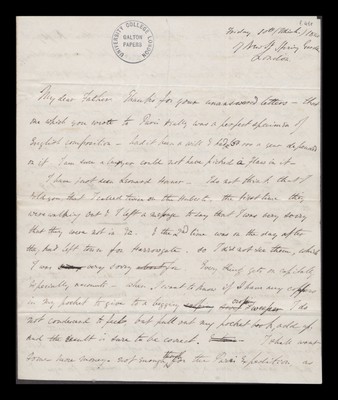 UNIVERSITY COLLEGE LONDON
GALTON PAPERS
Friday 20th March
London
My dear Father. Thanks for your letters — the
one which you wrote to Paris really was a perfect specimen of
English composition — had it been a will & £ a year depended
on it I am sure a lawyer could not have picked a flaw in it.
I have just seen Leonard Horner — I do not think that I
told you that I called twice on the , the first time they
were walking out & I left a message to say that I was very sorry
that they were not in. The 2nd time was on the day after
they had left town for Harrogate. So I did not see them, which
I was very sorry about. Every thing gets on capitally
especially accounts — when I want to know if I have any coppers
in my pocket to give to a begging sweeper I do
not condescend to feel but pull out my pocket book, add up,
and the result is sure to be correct. I shall want
some more money not enough for the Paris Expedition, as